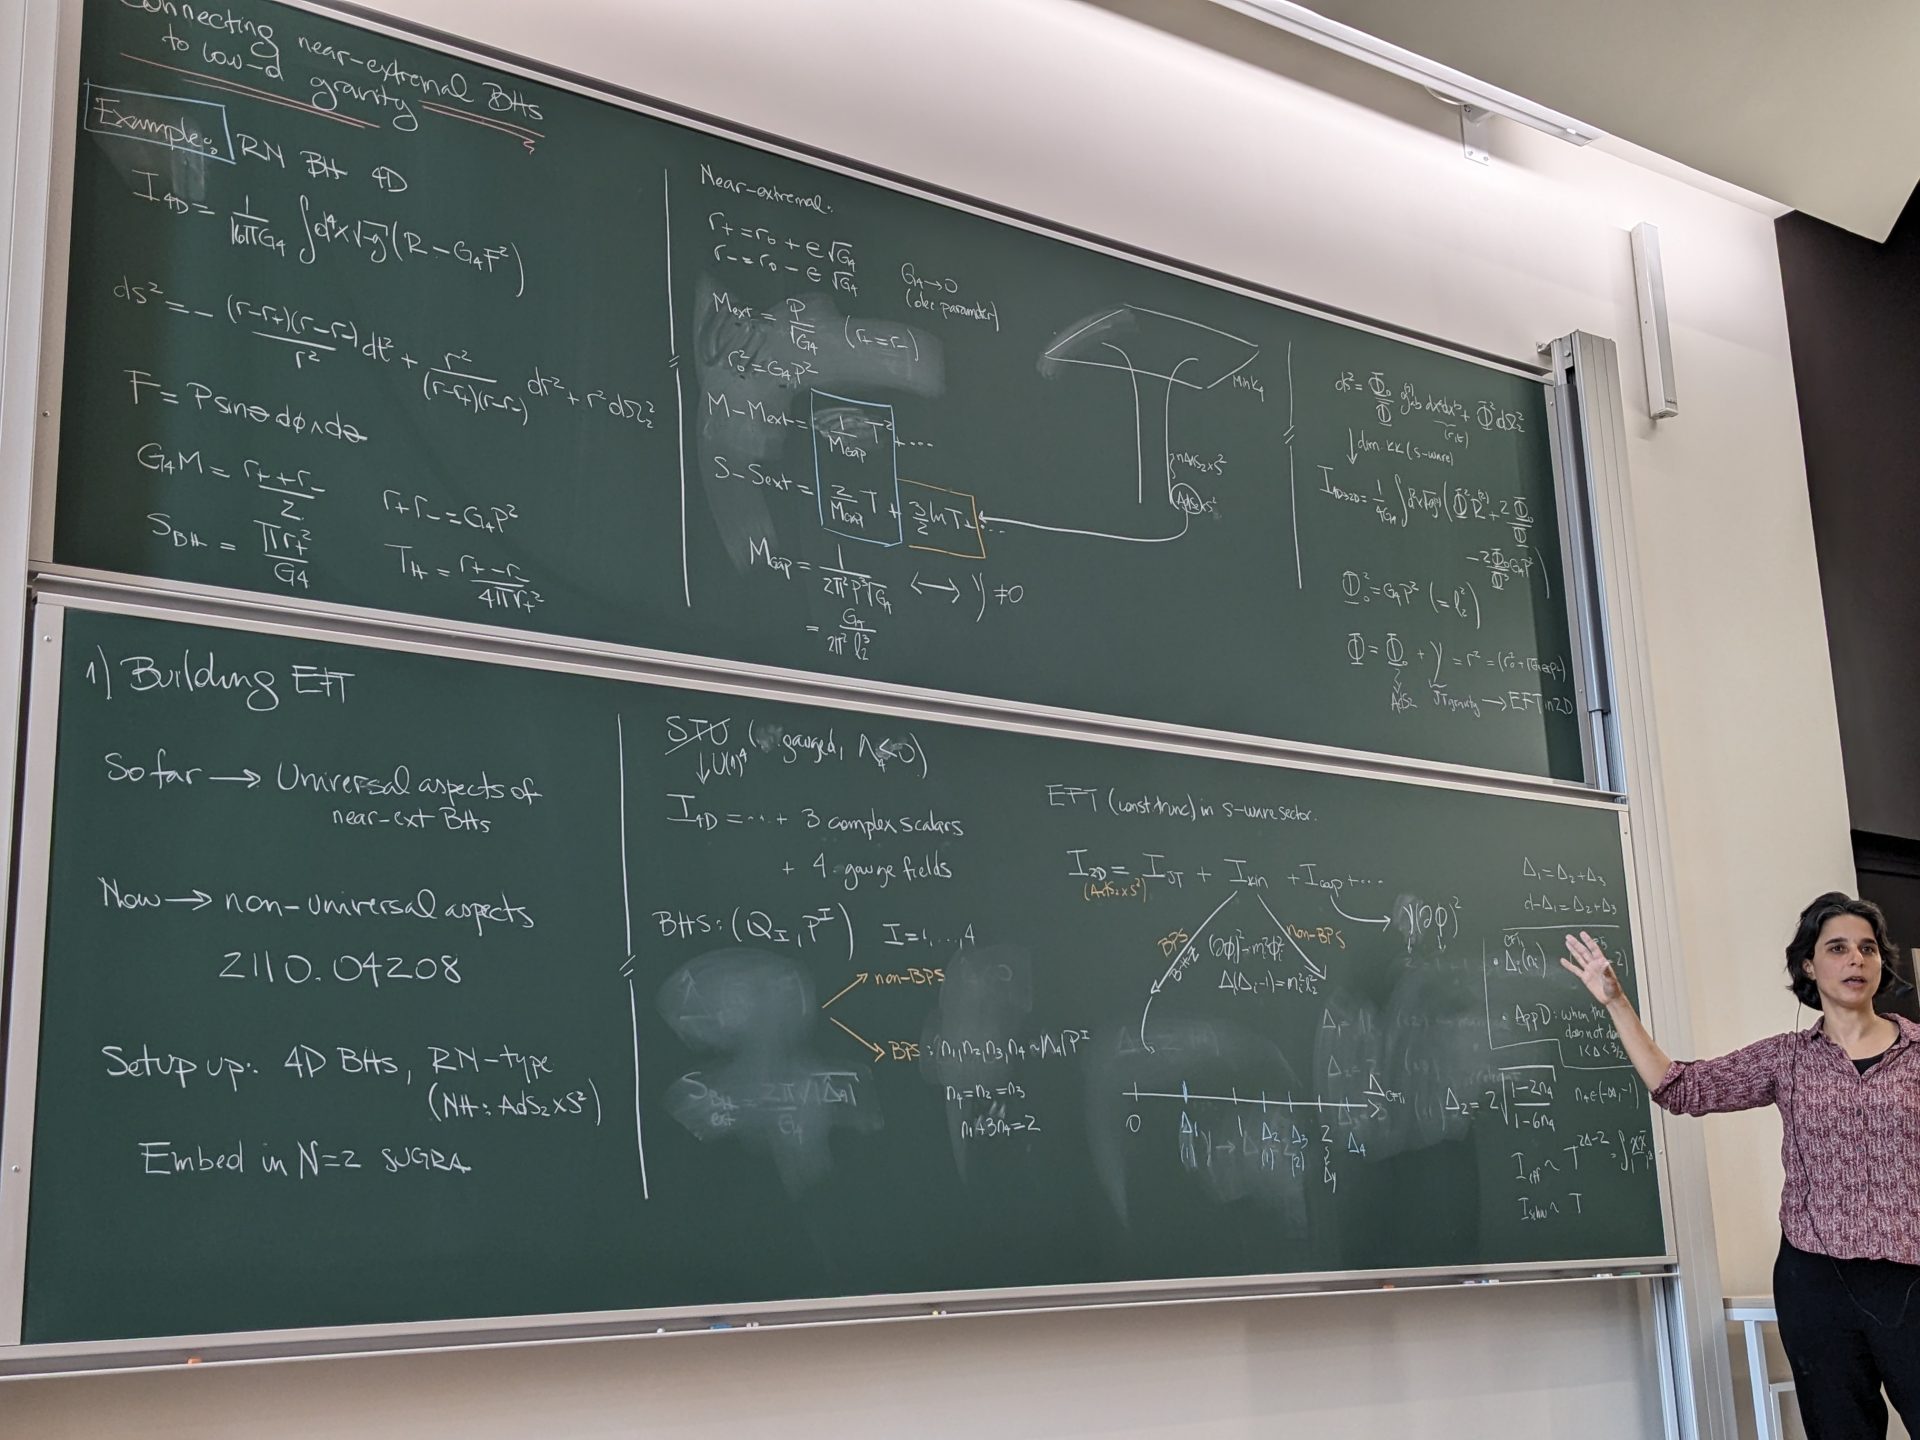 Connecting near-extremal BHs
to low-d gravity
Example: RN BH 4D
I_4D = 1/16πG_4 ∫d^4x √-g (R - G_4F^2)
ds^2 = - (r-r_+)(r-r_-)/r^2 dt^2 + r^2/(r-r_+)(r-r_-) dr^2 + r^2 dΩ_2^2
F = P sinθ dφ∧dθ
G_4M = r_+ + r_-/2
r_+ r_- = G_4P^2
S_BH = πr_+^2/G_4
T_H = r_+ - r_-/4πr_+^2
Near-extremal:
r_+ = r_0 + ϵ√G_4
r_- = r_0 - ϵ√G_4
G_4→0
(dec. parameter)
M_ext = P/√G_4 (r_+ = r_-)
r_0^2 = G_4P^2
M - M_ext = 1/M_gap T^2 + ....
S - S_ext = 2/M_gap T + 3/2 ln T + ...
M_gap = 1/2π^2P^3√G_4 ⟷ Y ≠ 0
= G_4/2π^2 l_2^3
Mink_4
nAdS_2×S^2
AdS_2×S^2
ds^2 = Φ_0/Φ g_ab^(2) dx^a dx^b + Φ^2 dΩ_2^2
(r,t)
↓ dim. KK (s-wave)
I_4D→2D = 1/4G_4 ∫d^2x √-g^(2) (Φ^2 R^(2) + 2 Φ_0/Φ
- 2 Φ_0/Φ^3 G_4P^2)
Φ_0^2 = G_4P^2 (= l_2^2)
AdS_2 JT gravity → EFT in 2D
1) Building EFT
So far → Universal aspects of
near-ext BHs
Now → non-universal aspects
2110.04208
Setup up: 4D BHs, RN-type
(NH: AdS_2×S^2)
Embed in N=2 SUGRA
STU (gauged, Λ_4≤0)
↓ U(1)^4
I_4D = ... + 3 complex scalars
+ 4 gauge fields
BHs: (Q_I, P^I) I=1,...,4
non-BPS
BPS: n_1,n_2,n_3,n_4 ~ √Λ_4 P^I
n_1=n_2=n_3
n_4+3n_1=2
EFT (const. trunc) in s-wave sector.
I_2D = I_JT + I_kin + I_cap + ...
(AdS_2×S^2)
BPS
non-BPS
Y(∂φ)^2
(∂φ_i)^2 - m_i^2φ_i^2
Δ_i(Δ_i-1) = m_i^2 l_2^2
0 Δ_1 1 Δ_2 Δ_3 2 Δ_4
(1) (1) (2)
Δ_Y
Δ_1 = Δ_2+Δ_3
d-Δ_1 = Δ_2+Δ_3
• Δ_i(n_i)
• App D: when the
does not
1<Δ<3/2
Δ_2 = 2√(1-2n_4/1-6n_4) n_4∈(-∞,-1)
I_eff ~ T^2Δ-2
I_schw ~ T